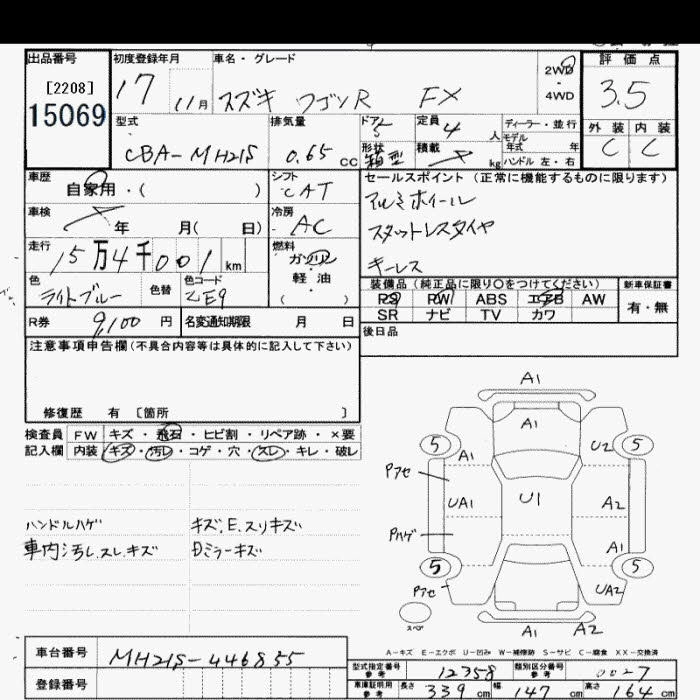 出品番号
[2208]
15069
初度登録年月
17
11月
車名・グレード
スズキ ワゴンR FX
2WD
・
4WD
評価点
3.5
外装 内装
C C
型式
CBA-MH21S
排気量
0.65 cc
ドア
5
形状
箱型
定員
4 人
積載
kg
ディーラー・並行
モデル
年式 年
ハンドル 左・右
車歴
自家用・( )
シフト
CAT
車検
年 月( 日)
冷房
AC
走行
15万4千001 km
燃料
ガソリン
軽油
( )
色
ライトブルー
色替
色コード
ZE9
R券 9,100 円
名変通知期限 月 日
セールスポイント(正常に機能するものに限ります)
アルミホイール
スタットレスタイヤ
キーレス
装備品(純正品に限り〇をつけてください)
PS PW ABS エアB AW
SR ナビ TV カワ
新車保証書
有・無
後日品
注意事項申告欄(不具合内容等は具体的に記入して下さい)
修復歴 有 〔箇所 〕
検査員
記入欄
FW キズ・飛石・ヒビ割・リペア跡・×要
内装 キズ・汚レ・コゲ・穴・スレ・キレ・破レ
ハンドルハゲ
車内汚レ.スレ.キズ
キズ.E.スリキズ
Dミラーキズ
A1
A1
5 A1 U2 5
Pアセ
UA1 U1 A2
Pハゲ
A1
5 5
Pアセ UA2
スペア
A1 A2
A-キズ E-エクボ U-凹み W-補修跡 S-サビ C-腐食 XX-交換済
車台番号 MH21S-446855
登録番号
型式指定番号
参考
12358
類別区分番号
参考
0027
車庫証明用
参考
長さ 339 cm 幅 147 cm 高さ 164 cm